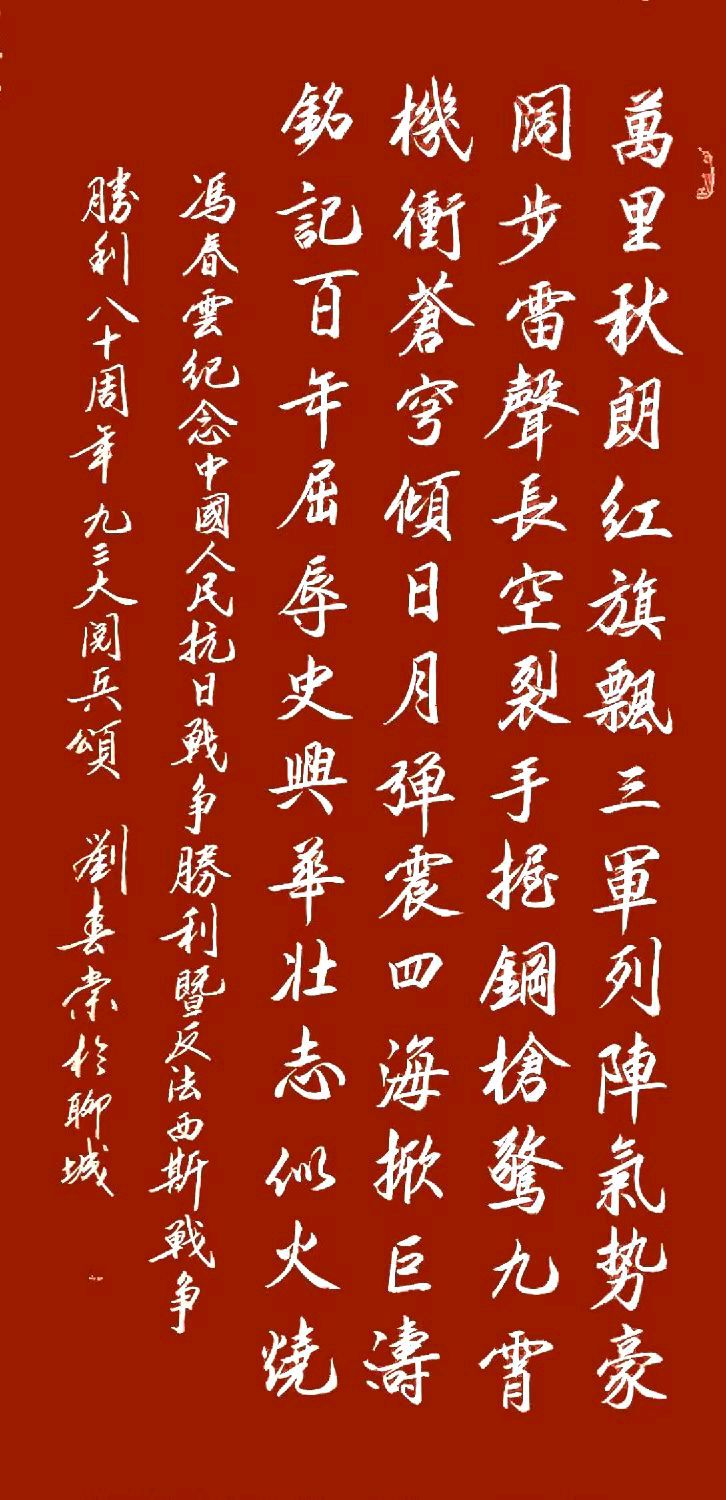 萬里秋朗红旗飄三軍列陣氣势豪
阔步雷聲長空裂手握鋼槍驚九霄
機衝蒼穹傾日月弹震四海掀巨濤
銘記百年屈辱史興華壮志似火燒
馮春雲纪念中國人民抗日戰争勝利暨反法西斯戰争
勝利八十周年九三大阅兵頌 劉春棠於聊城